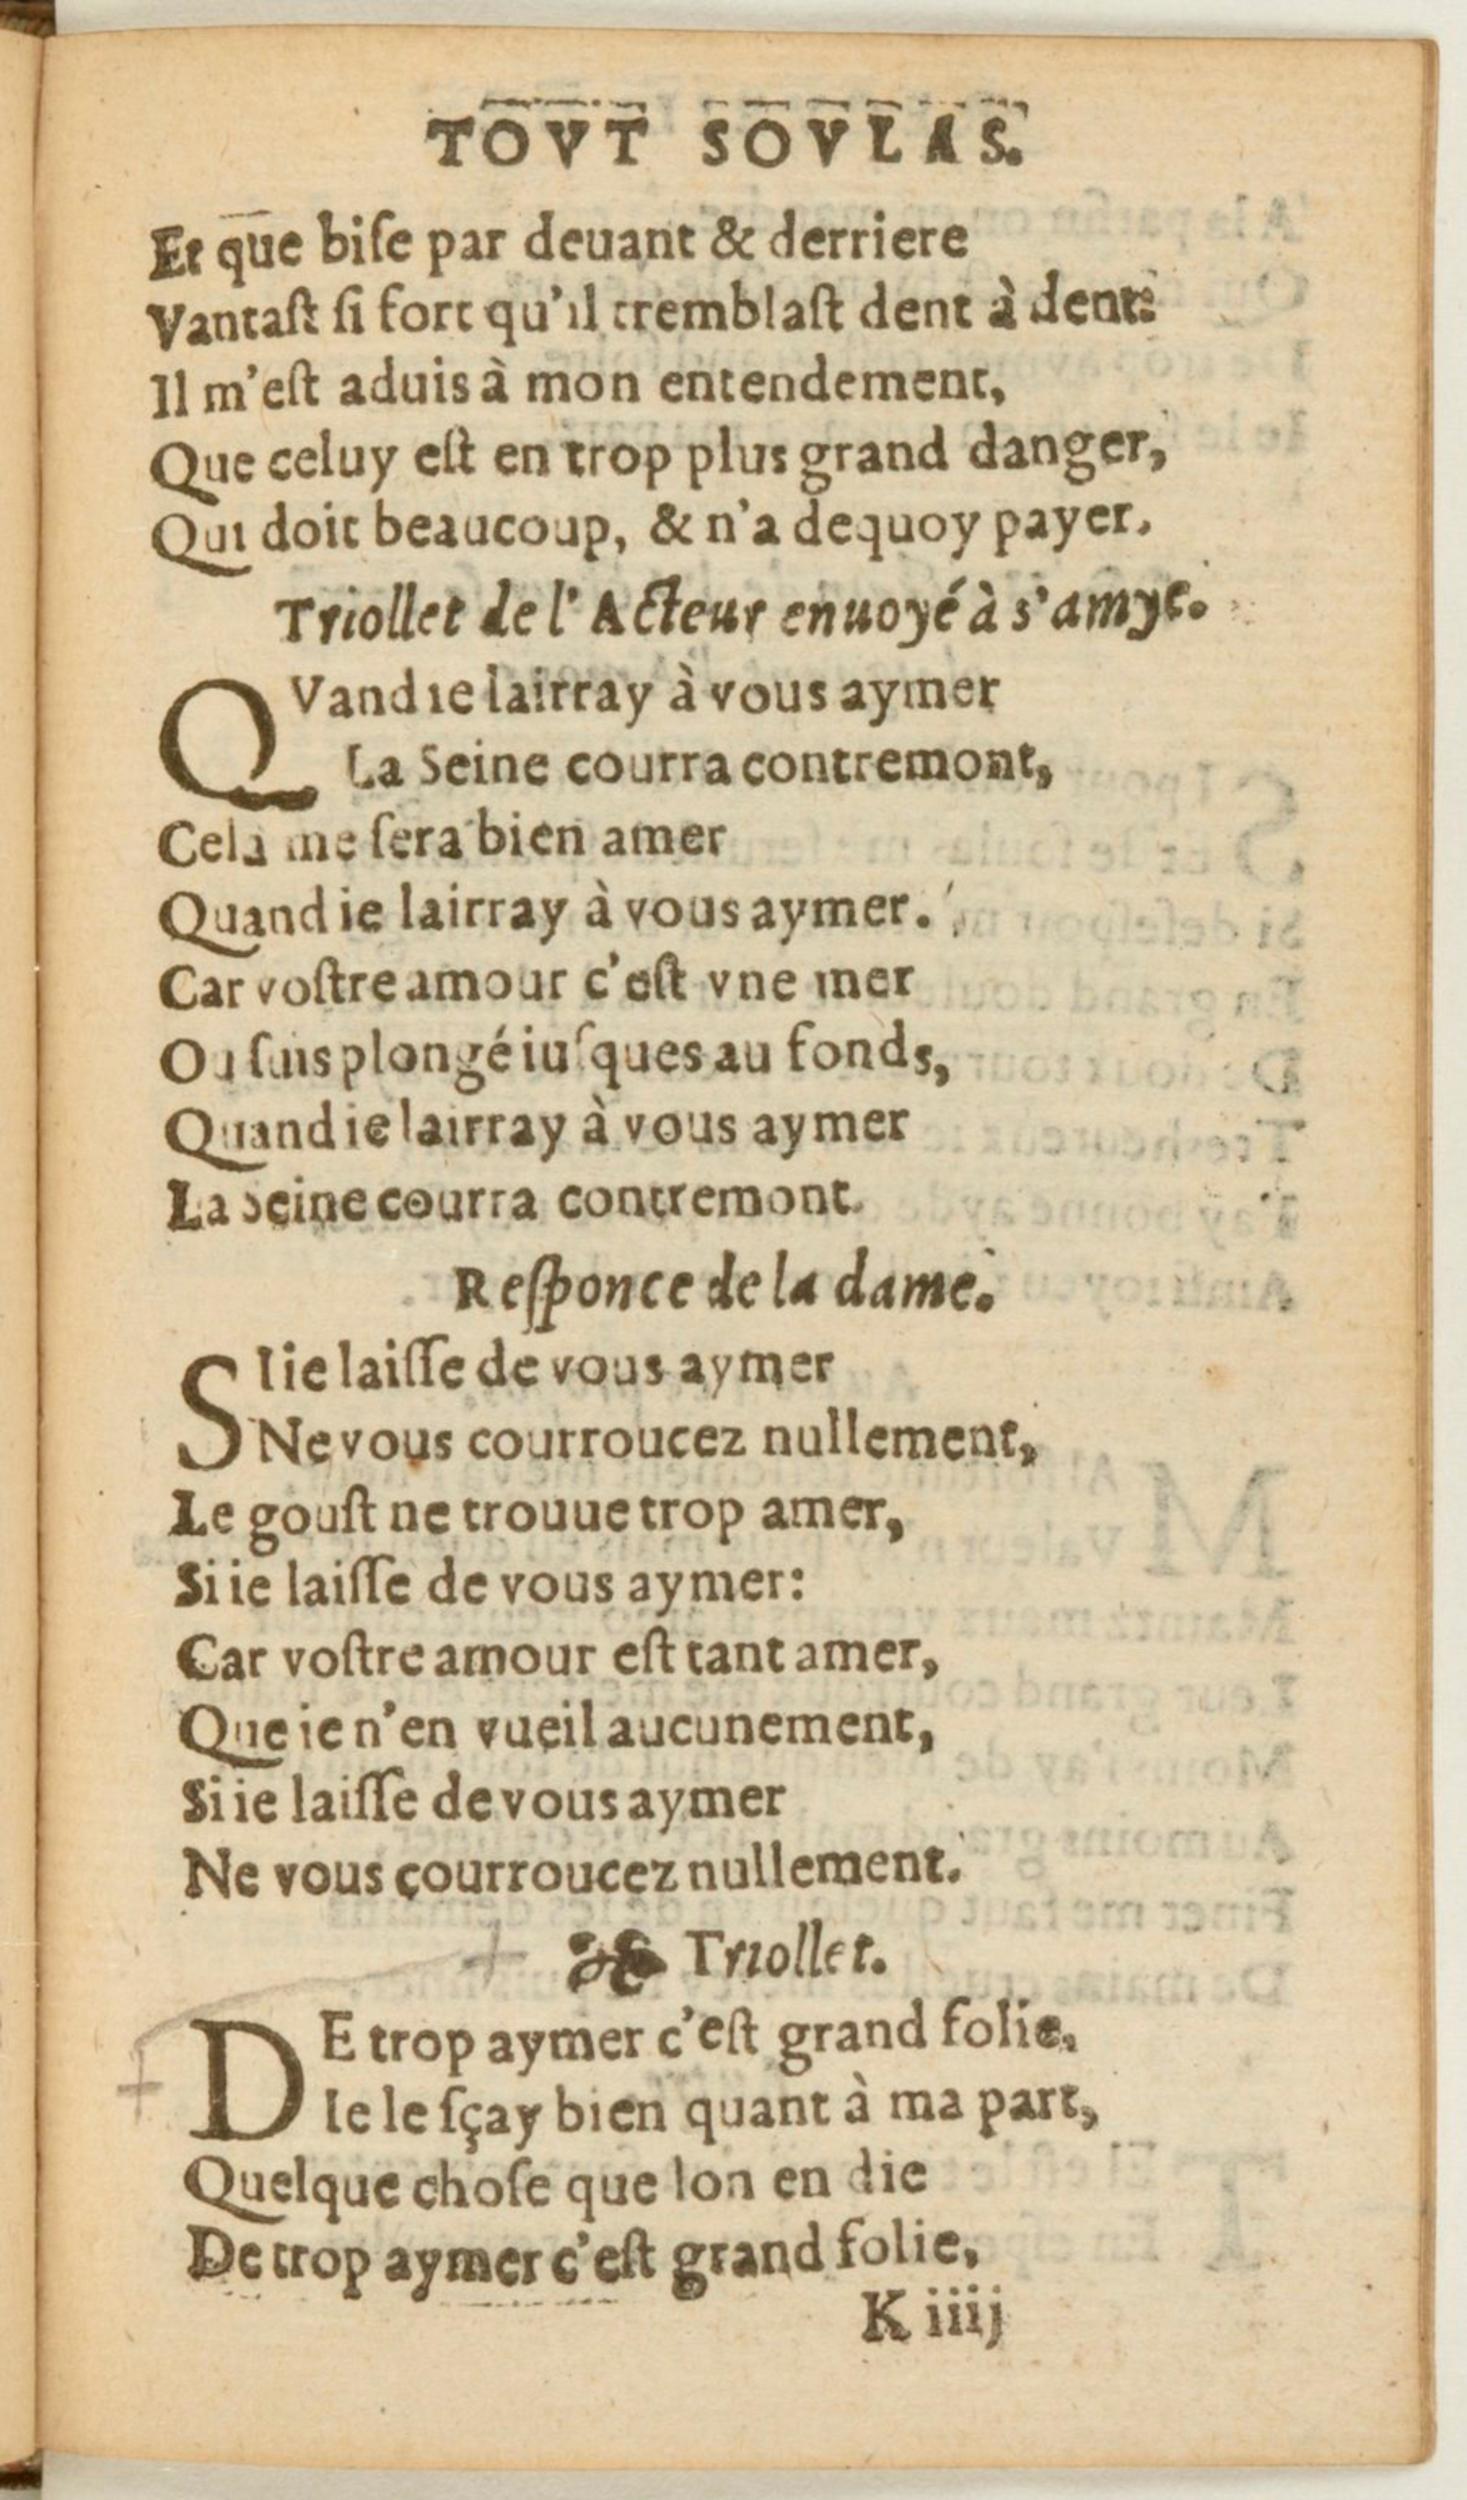 TOVT SOVLAS.
Et que biſe par deuant & derriere
Vantaſt ſi fort qu'il tremblaſt dent à dent:
Il m'eſt aduis à mon entendement,
Que celuy eſt en trop plus grand danger,
Qui doit beaucoup, & n'a dequoy payer.
Triollet de l'Acteur enuoyé à s'amye.
QVand ie lairray à vous aymer
La Seine courra contremont,
Cela me ſera bien amer
Quand ie lairray à vous aymer.
Car voſtre amour c'eſt vne mer
Ou ſuis plongé iuſques au fonds,
Quand ie lairray à vous aymer
La Seine courra contremont.
Reſponce de la dame.
SI ie laiſſe de vous aymer
Ne vous courroucez nullement,
Le gouſt ne trouue trop amer,
Si ie laiſſe de vous aymer:
Car voſtre amour eſt tant amer,
Que ie n'en vueil aucunement,
Si ie laiſſe de vous aymer
Ne vous courroucez nullement.
Triollet.
DE trop aymer c'eſt grand folie,
Ie le ſçay bien quant à ma part,
Quelque choſe que lon en die
De trop aymer c'eſt grand folie,
K iiij